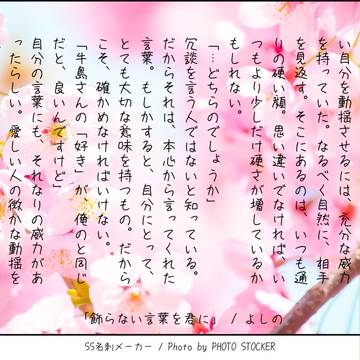 い自分を動揺させるには、充分な威力
を持っていた。なるべく自然に、相手
を見返す。そこにあるのは、いつも通
りの硬い顔。思い違いでなければ、い
つもより少しだけ硬さが増しているか
もしれない。
「…どちらのでしょうか」
冗談を言う人ではないと知っている。
だからそれは、本心から言ってくれた
言葉。もしかすると、自分にとって、
とても大切な意味を持つもの。だから
こそ、確かめなければいけない。
「牛島さんの「好き」が、俺のと同じ
だと、良いんですけど」
自分の言葉にも、それなりの威力があ
ったらしい。愛しい人の微かな動揺を
「飾らない言葉を君に」 / よしの
SS名刺メーカー / Photo by PHOTO STOCKER